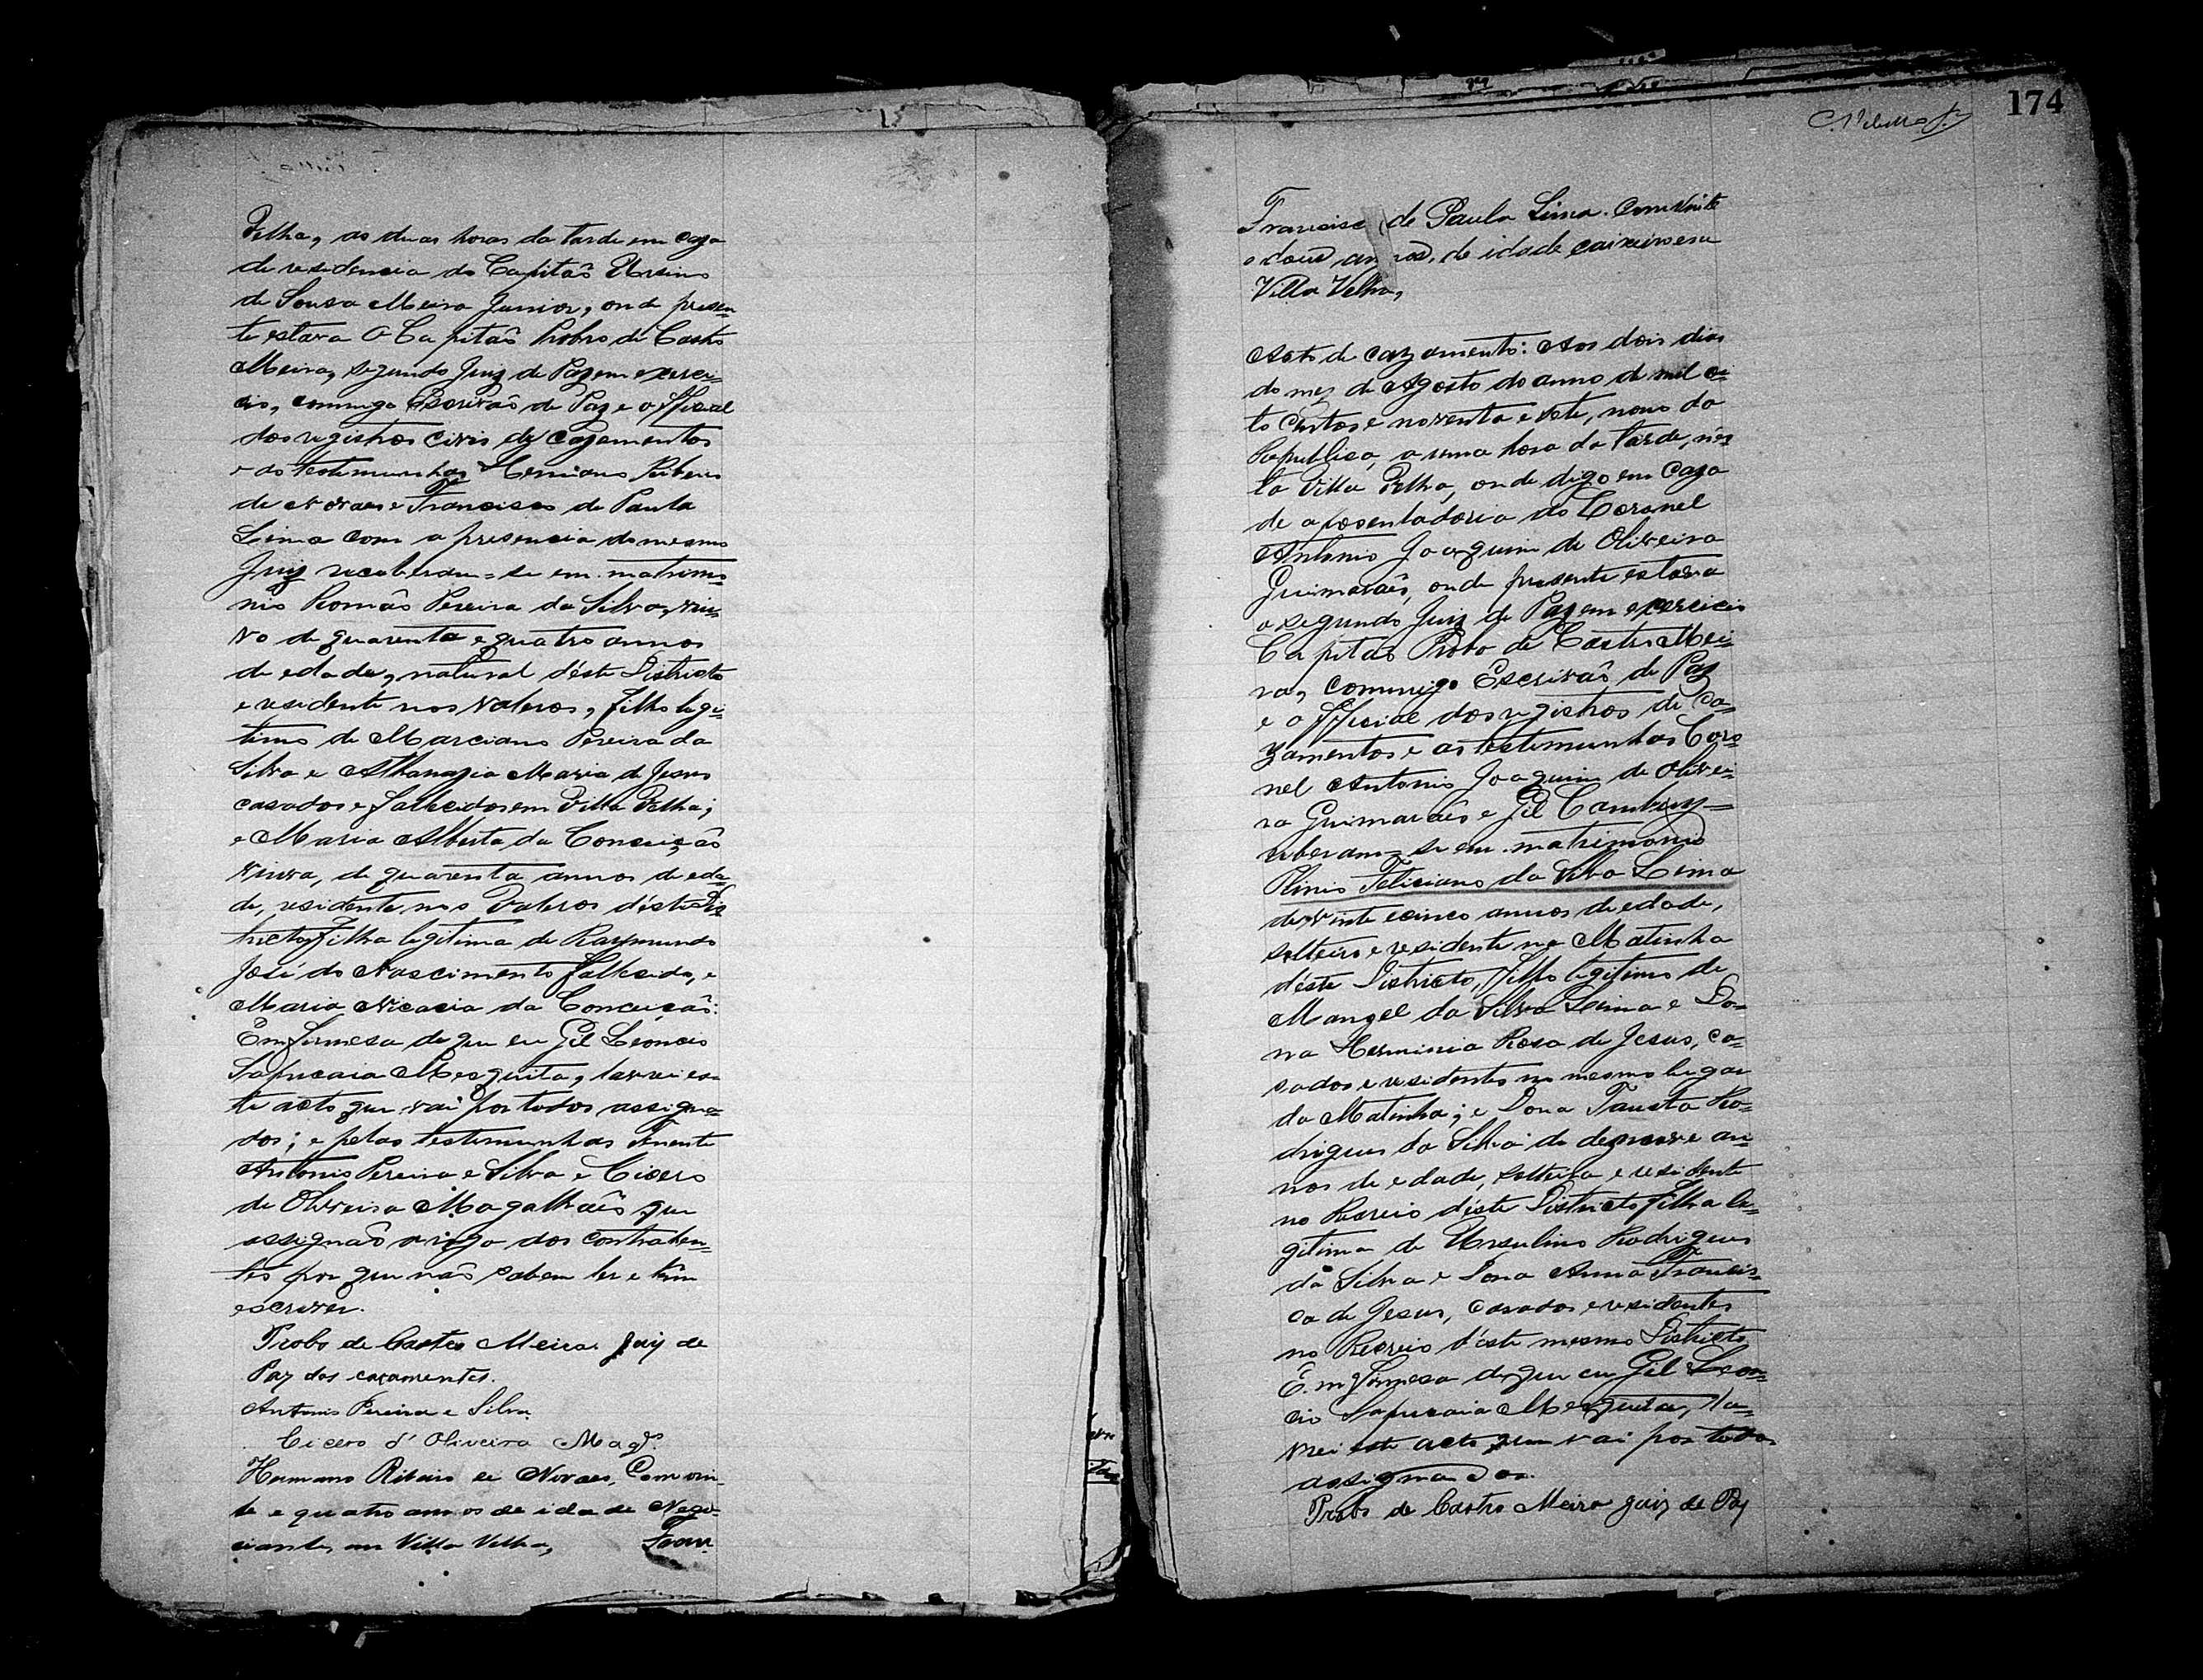 Velha, as duas horas da tarde em caza
de residencia do Capitaõ Ursino
de Sousa Meira Junior, onde presen-
te estava o Capitaõ Probo de Castro
Meira, segundo Juiz de Paz em exerci-
cio, commigo Escrivaõ de Paz e official
dos registros civis de cazamentos
e as testemunhas Hermano Ribeiro
de Novaes e Francisco de Paula
Lima com a presencia do mesmo
Juiz receberam-se em matrimo-
nio Romaõ Pereira da Silva, viu-
vo de quarenta e quatro annos
de edade, natural déste Districto
e residente nos Valeros, filho legi-
timo de Marciano Pereira da
Silva e Athanazia Maria de Jesus
casados e fallecidos em Villa Velha;
e Maria Alberta da Conceiçaõ
viuva, de quarenta annos de eda-
de, residente nos Valeros déste Dis-
tricto, filha legitima de Raymundo
José do Nascimento fallecido, e
Maria Nicacia da Conceiçaõ.
Em firmesa do que eu Gil Leoncio
Sapucaia Mesquita, lavrei es-
te acto que vai por todos assigna-
dos; e pelas testemunhas Tenente
Antonio Pereira e Silva e Cicero
de Oliveira Magalhaẽs que
assignaõ a rogo dos contrahen-
tes por que naõ sabem ler e nem
escrever.
Probo de Castro Meira Juiz de
Paz dos casamentos.
Antonio Pereira e Silva
Cicero d'Oliveira Mag.es
Hermano Ribeiro de Novaes, Com vin-
te e quatro annos de idade Nego-
ciante, em Villa Velha, Fran
174
Francisco de Paula Lima. Com vinte
e dous annos, de idade caixeiro em
Villa Velha,
Acto de cazamento: Aos dois dias
do mez de Agosto do anno de mil oi-
to centos e noventa e sete, nono da
Republica, a uma hora da tarde, nés-
ta Villa Velha, onde digo em caza
de aposentadoria do Coronel
Antonio Joaquim de Oliveira
Guimaraẽs, onde presente estava
o segundo Juiz de Paz em exercicio
Capitaõ Probo de Castro Mei-
ra, commigo Escrivaõ de Paz
e official dos registros de ca-
zamentos e as testemunhas Coro-
nel Antonio Joaquim de Olivei-
ra Guimaraẽs e Gil
ceberam-se em matrimonio
Plinio Feliciano da Silva Lima
de vinte e cinco annos de edade,
solteiro e residente na Matinha
déste Districto, filho legitimo de
Manoel da Silva Lima e Do-
na Herminia Rosa de Jesus, ca-
sados e residentes no mesmo lugar
da Matinha; e Dona Fausta Ro-
drigues da Silva de dezenove an-
nos de edade, solteira e residente
no Recreio déste Districto filha le-
gitima de Ursulino Rodrigues
da Silva e Dona Anna Francis-
ca de Jesus, casados e residentes
no Recreio d'éste mesmo Districto
Em firmesa do que eu Gil Leon-
cio Sapucaia Mesquita, la-
vrei este acto que vai por todos
assignados.
Probo de Castro Meira Juiz de Paz